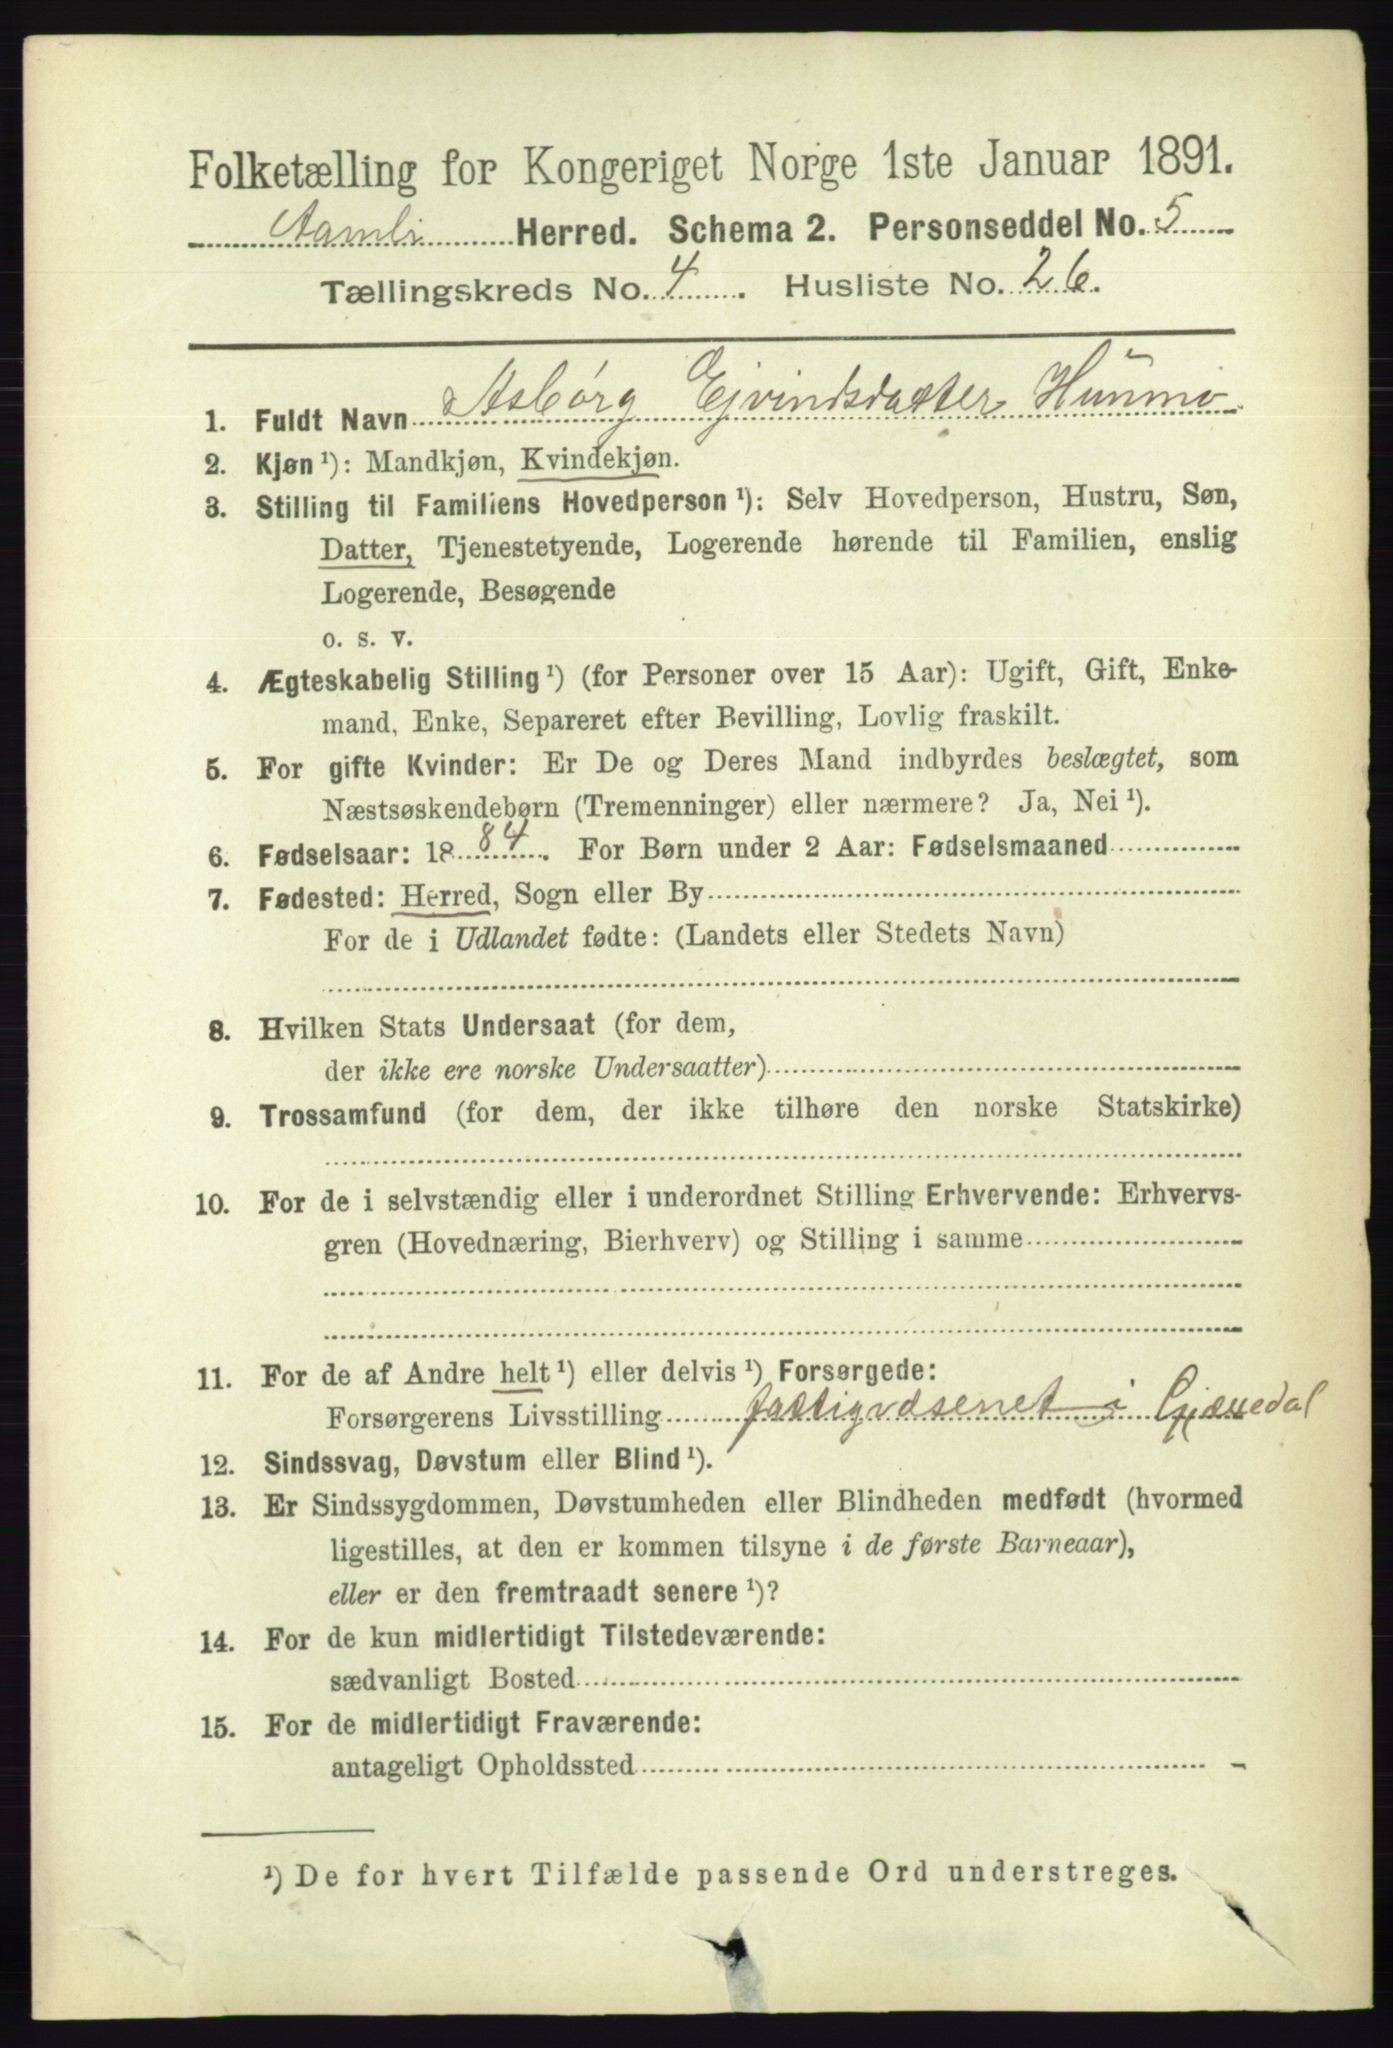 Folketælling for Kongeriget Norge 1ste Januar 1891.
Aamli Herred. Schema 2. Personseddel No. 5
Tællingskreds No. 4. Husliste No. 26.
1. Fuldt Navn Asbørg Ejvindsdatter
2. Kjøn ¹): Mandkjøn, Kvindekjøn.
3. Stilling til Familiens Hovedperson ¹): Selv Hovedperson, Hustru, Søn,
Datter, Tjenestetyende, Logerende hørende til Familien, enslig
Logerende, Besøgende
o. s. v.
4. Ægteskabelig Stilling ¹) (for Personer over 15 Aar): Ugift, Gift, Enke-
mand, Enke, Separeret efter Bevilling, Lovlig fraskilt.
5. For gifte Kvinder: Er De og Deres Mand indbyrdes beslægtet, som
Næstsøskendebørn (Tremenninger) eller nærmere? Ja, Nei ¹).
6. Fødselsaar: 1884. For Børn under 2 Aar: Fødselsmaaned
7. Fødested: Herred, Sogn eller By
For de i Udlandet fødte: (Landets eller Stedets Navn)
8. Hvilken Stats Undersaat (for dem,
der ikke ere norske Undersaatter)
9. Trossamfund (for dem, der ikke tilhøre den norske Statskirke)
10. For de i selvstændig eller i underordnet Stilling Erhvervende: Erhvervs-
gren (Hovednæring, Bierhverv) og Stilling i samme
11. For de af Andre helt ¹) eller delvis ¹) Forsørgede:
Forsørgerens Livsstilling i
12. Sindssvag, Døvstum eller Blind ¹).
13. Er Sindssygdommen, Døvstumheden eller Blindheden medfødt (hvormed
ligestilles, at den er kommen tilsyne i de første Barneaar),
eller er den fremtraadt senere ¹)?
14. For de kun midlertidigt Tilstedeværende:
sædvanligt Bosted
15. For de midlertidigt Fraværende:
antageligt Opholdssted
¹) De for hvert Tilfælde passende Ord understreges.